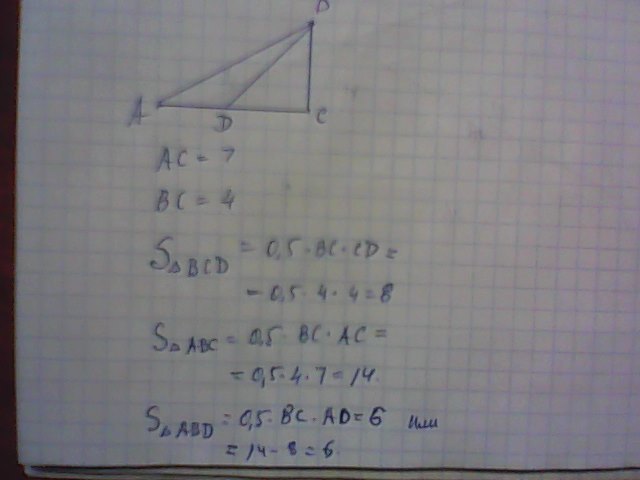 B
A
D
C
AC = 7
BC = 4
S△BCD = 0,5 · BC · CD =
= 0,5 · 4 · 4 = 8
S△ABC = 0,5 · BC · AC =
= 0,5 · 4 · 7 = 14.
S△ABD = 0,5 · BC · AD = 6 или
= 14 - 8 = 6.